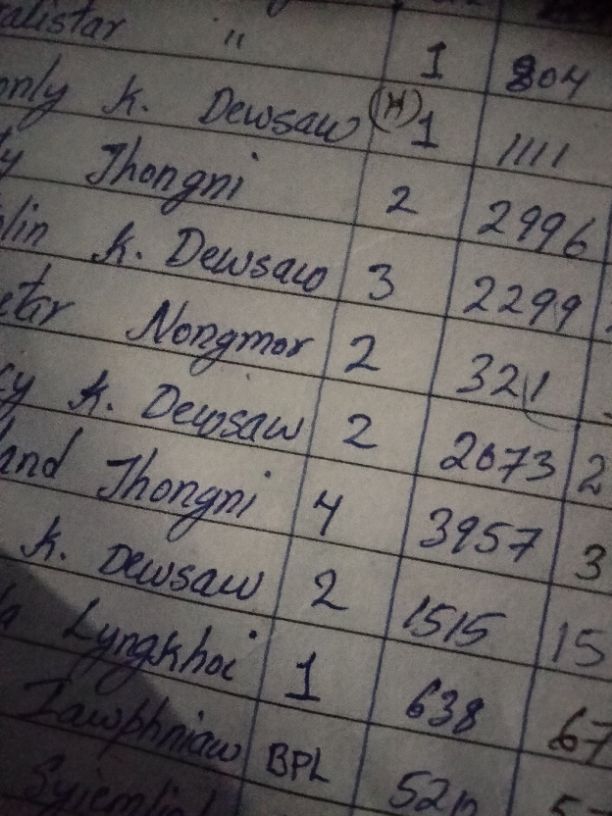 alistar " 1 804
only K. Dewsaw (H) 1 1111
y Thongni 2 2996
lin K. Dewsaw 3 2299
etar Nongmor 2 321
cy K. Dewsaw 2 2673 2
land Thongni 4 3957 3
K. Dewsaw 2 1515 15
la Lyngkhoi 1 638 67
Iawphniaw BPL